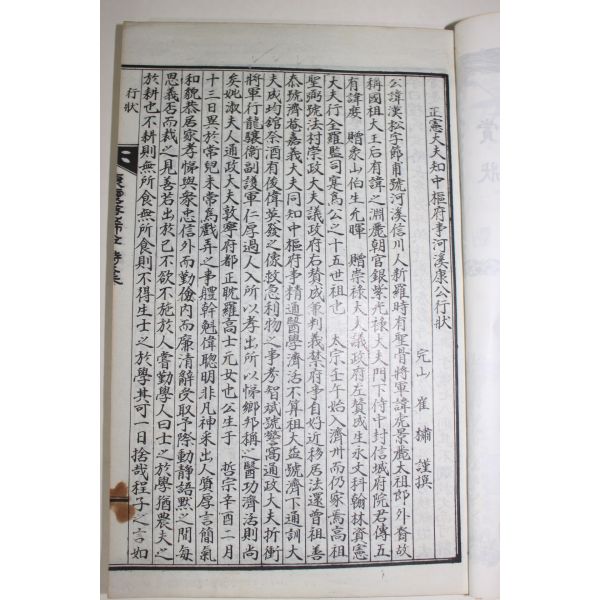 正憲大夫知中樞府事河溪康公行狀
完山 崔 謹撰
公諱漢松字郎甫號河溪信川人新羅時有聖骨將軍諱虎景麗太祖郎外舅故
稱國祖大王后有諱之淵麗朝官銀紫光祿大夫門下侍中封信城府院君傳五
有諱庋 贈象山伯生允暉 贈崇祿大夫議政府左贊成生永文科翰林資憲
大夫行全羅監司寔爲公之十五世祖也 太宗壬午始入濟州而仍家焉高祖
聖弼號法村崇政大夫議政府右贊成兼判義禁府事自好近移居法還曾祖善
泰號濟庵嘉義大夫同知中樞府事精通醫學濟活不算祖大益號濟下通訓大
夫成均舘祭酒有俊偉英發之像救急利物之事考智斌號警窩通政大夫折衝
將軍行龍驤衞副護軍仁厚過人入所以孝出所以悌鄉邦稱之醫功濟活則尚
矣妣淑夫人通政大夫敦寧府都正耽羅高士元女也公生于 哲宗辛酉二月
十三日異於常兒未常爲戱弄之事軆幹魁偉聰明非凡神采出人質厚言簡氣
和貌恭居家孝悌與衆忠信外而勤儉內而廉清辭受取予際動靜語默之間每
思義否而裁之見善若出於己不欲不施於人嘗勤學人曰士之於學猶農夫之
於耕也不耕則無所食無所食則不得生士之於學其可一日捨哉程子之言如
行狀